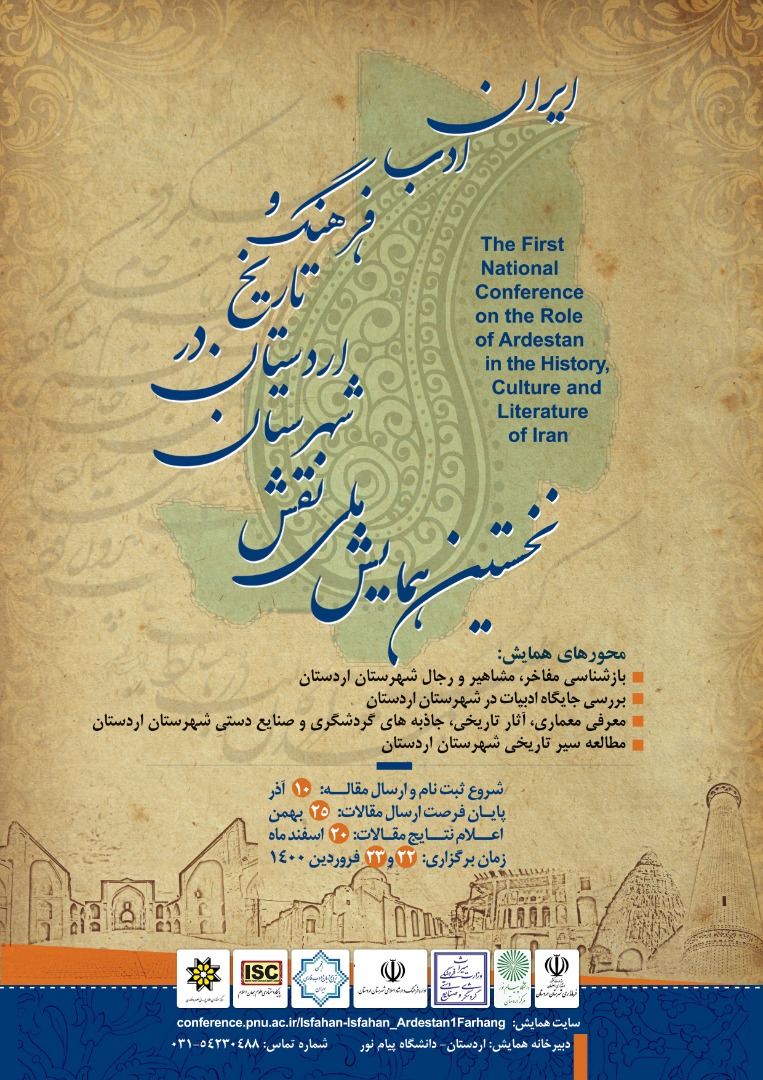 ایران
ادب
و
فرهنگ
تاریخ
در
اردستان
شهرستان
نقش
ملی
همایش
نخستین
The First
National
Conference
on the Role
of Ardestan
in the History,
Culture and
Literature
of Iran
محورهای همایش:
بازشناسی مفاخر، مشاهیر و رجال شهرستان اردستان
بررسی جایگاه ادبیات در شهرستان اردستان
معرفی معماری، آثار تاریخی، جاذبه های گردشگری و صنایع دستی شهرستان اردستان
مطالعه سیر تاریخی شهرستان اردستان
شروع ثبت نام و ارسال مقالـــه: ۱۰ آذر
پایـان فرصت ارسال مقالات: ۲۵ بهمن
اعـــلام نتـــایج مقــالات: ۲۰ اسفندماه
زمان برگزاری: ۲۲ و ۲۳ فروردین ۱۴۰۰
ISC
سایت همایش: conference.pnu.ac.ir/Isfahan-Isfahan_Ardestan1Farhang
دبیرخانه همایش: اردستان- دانشگاه پیام نور شماره تماس: ۵۴۲۳۰۴۸۸-۰۳۱